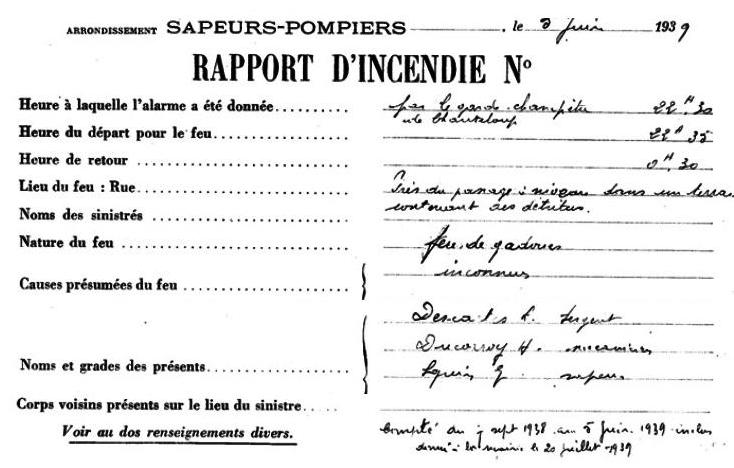 ARRONDISSEMENT SAPEURS-POMPIERS, le 3 juin 1939
RAPPORT D'INCENDIE N°
Heure à laquelle l'alarme a été donnée.......... par le garde-champêtre 22H.30
de Chanteloup
Heure du départ pour le feu.................... 22H 35
Heure de retour .......................... 0H.30
Lieu du feu : Rue.......................... Près du passage à niveau dans un terrain
contenant des détritus.
Noms des sinistrés ........................
Nature du feu ........................... feu de gadoues
inconnues
Causes présumées du feu ....................
R. sergent
Ducorroy H. mécanicien
Noms et grades des présents................. G. sapeur
Corps voisins présents sur le lieu du sinistre.....
Voir au dos renseignements divers. Compté du sept 1938 au 5 juin 1939 inclus
donné à la mairie le 20 juillet 1939